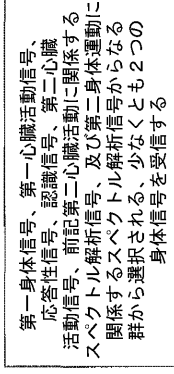 第一身体信号、第一心臓活動信号、
応答性信号、認識信号、第二心臓
活動信号、前記第二心臓活動に関係する
スペクトル解析信号、及び第二身体運動に
関係するスペクトル解析信号からなる
群から選択される、少なくとも２つの
身体信号を受信する